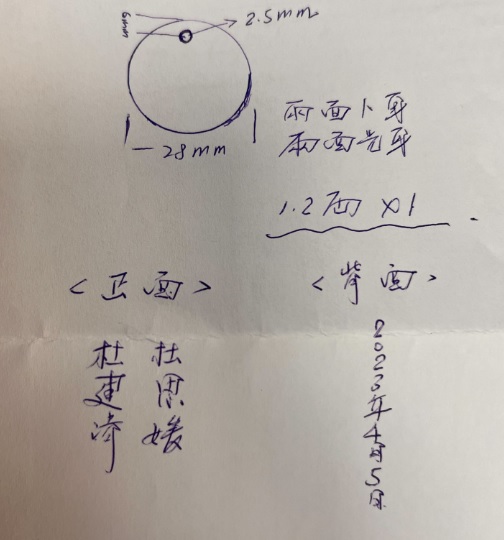 6mm
2.5mm
28mm
兩面卜身
兩面光身
1.2 x1
<正面>
<背面>
杜媛
杜建
2023年4月5日